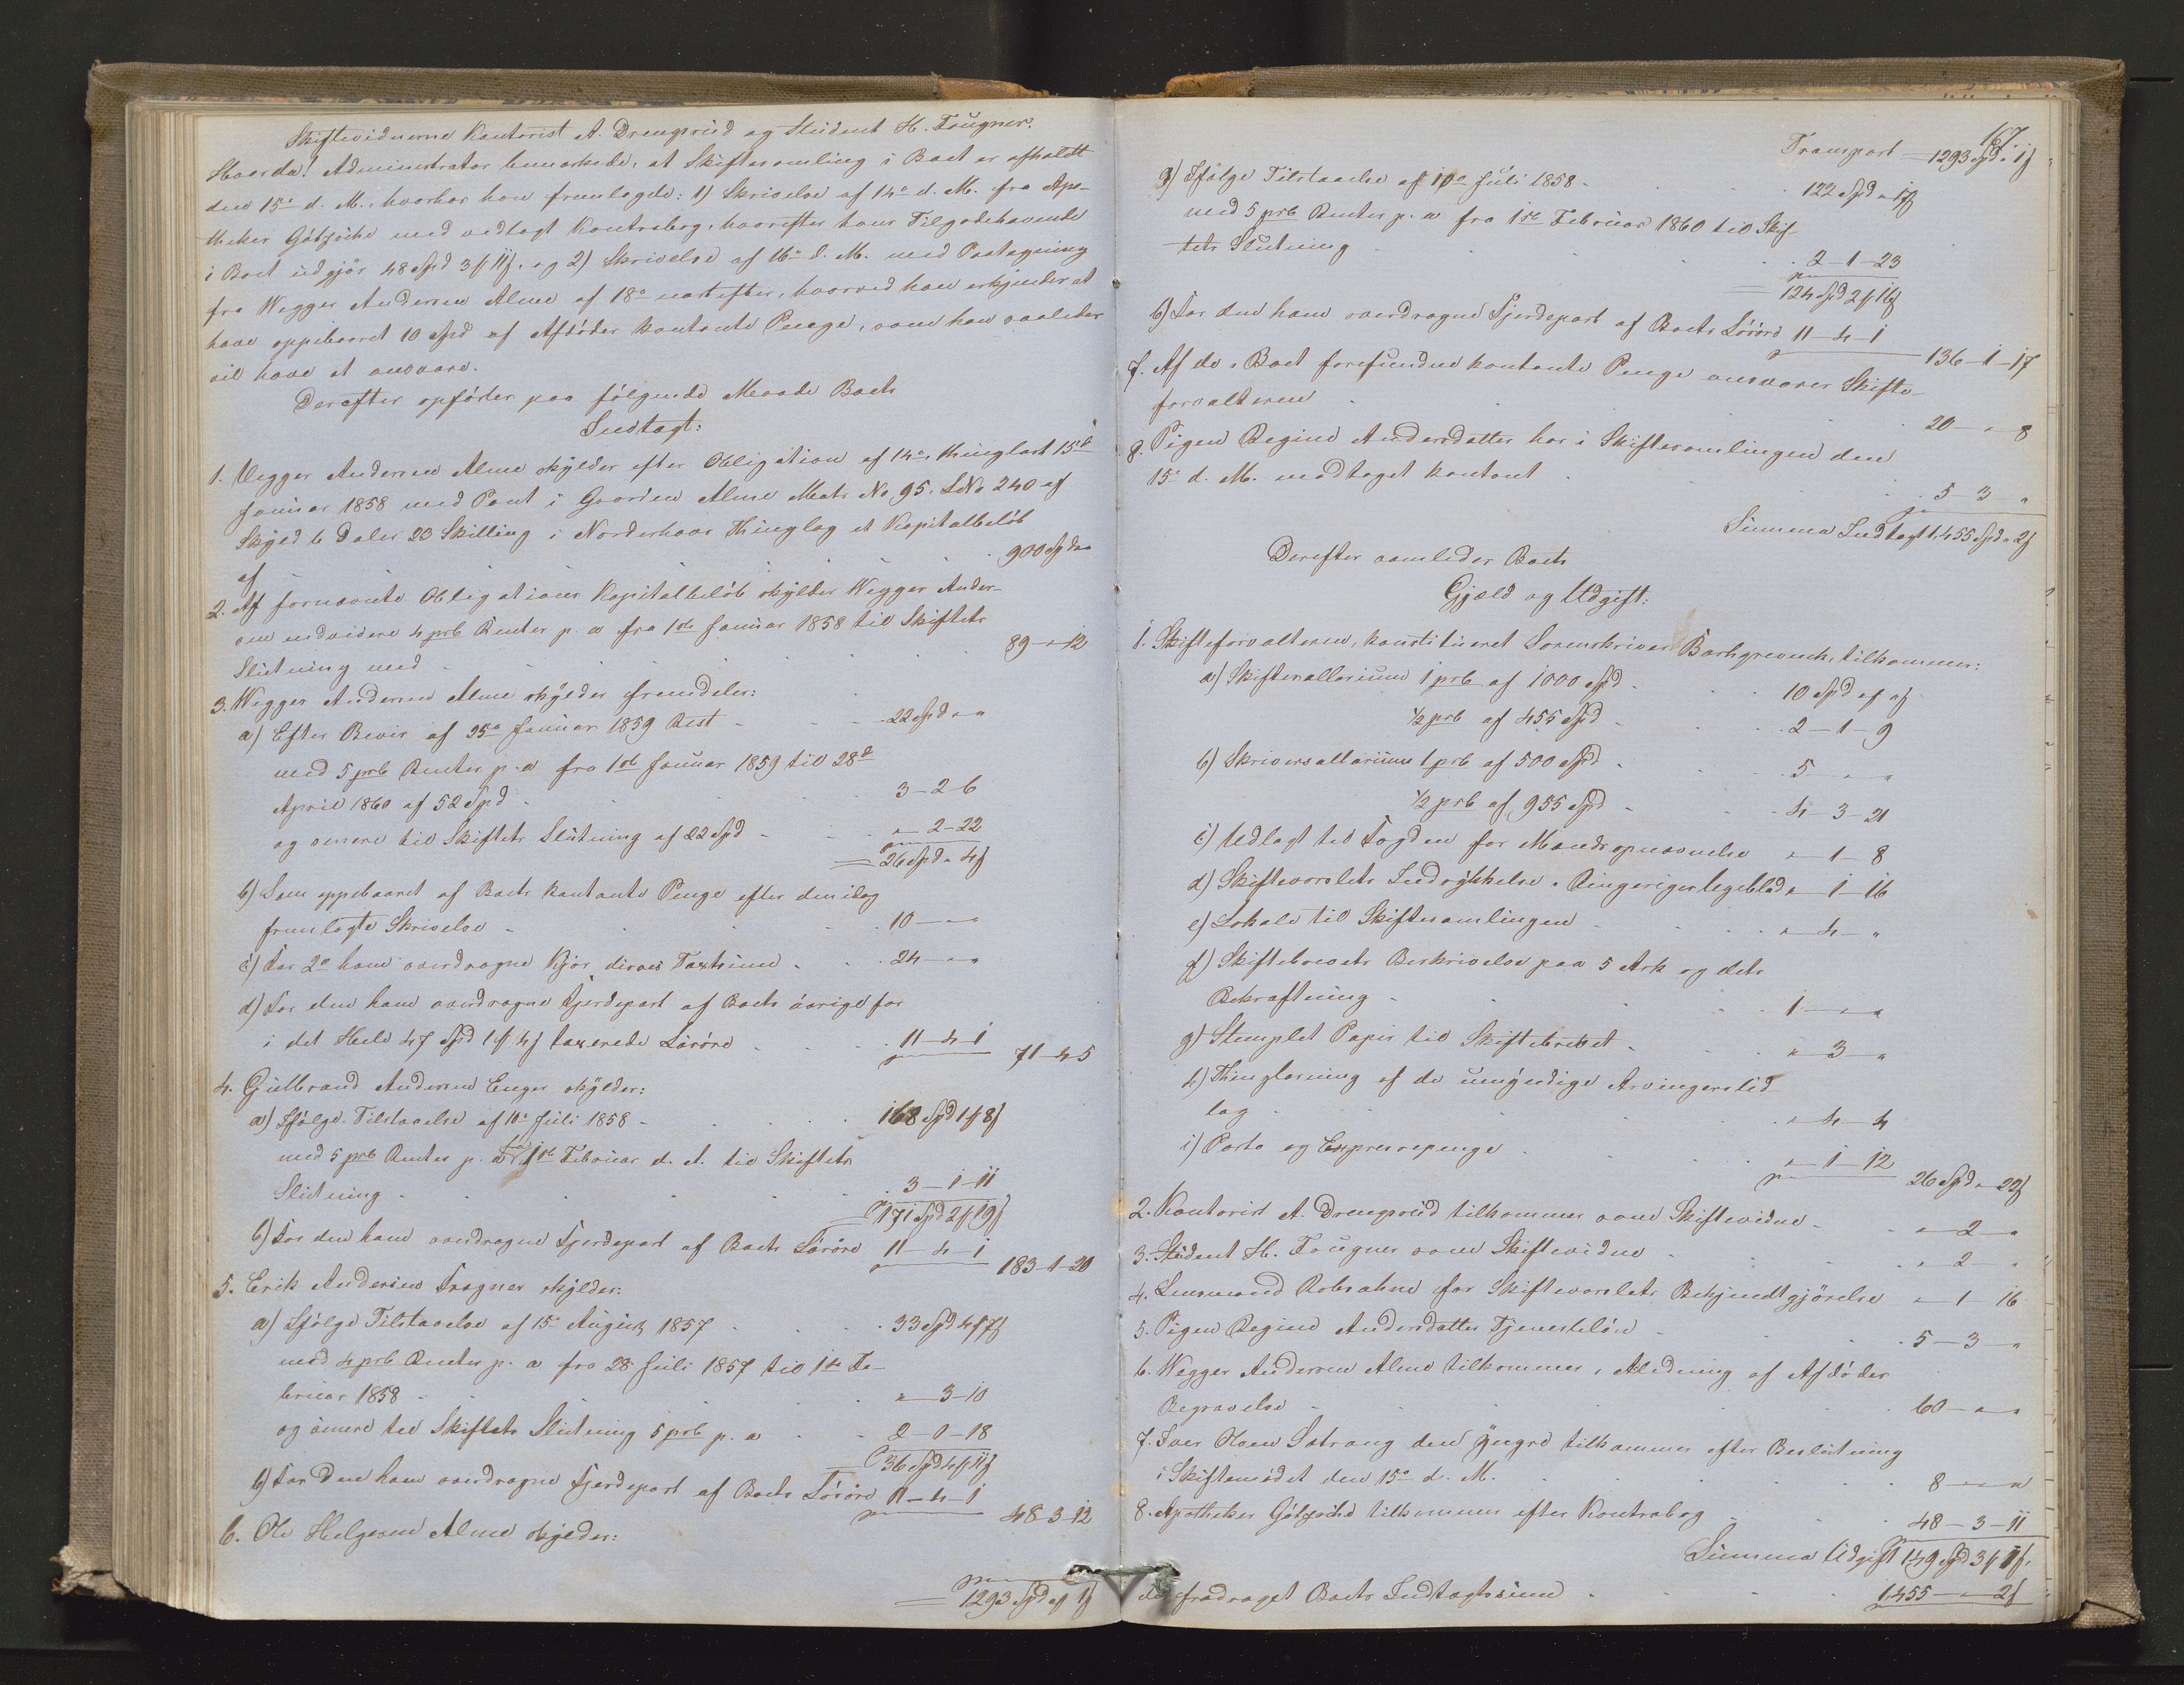 Skiftevidnerne Kontorist A. Drengsrud og Student H. Tougner.
Hvorda! Administrator bemærkede, at Skiftesamling i Boet er afholdt
den 15de d. M., hvorhos han fremlagde: 1) Skrivelse af 14de d. M. fra Apo-
theker Götzsche med vedlagt Kontrabog, hvorefter hans Tilgodehavende
i Boet udgjør 48 Spd 3 ƒ 11 ß, og 2) Skrivelse af 16de d. M. med Paategning
fra Wegger Andersen Alme af 18de næstefter, hvorved han erkjender at
have oppebaaret 10 Spd af Afdødes kontante Penge, som han saaledes
vil have at ansvare.
Derefter opføres paa følgende Maade Boets
Indtægt:
1. Wegger Andersen Alme skylder efter Obligation af 14de, thinglæst 15de
Januar 1858 med Pant i Gaarden Alme Matr. No 95. LNo 240 af
Skyld 6 Daler 23 Skilling i Norderhovs Thinglag et Kapitalbeløb
af - - - 900 Spd " "
2. Af fornævnte Obligations Kapitalbeløb skylder Wegger Ander-
sen endvidere 4 prC Renter p. a fra 1ste Januar 1858 til Skiftets
Slutning med - - - 89 - " - 12
3. Wegger Andersen Alme skylder fremdeles:
a) Efter Bevis af 25de Januar 1859 Rest - - 22 Spd " "
med 5 prC Renter p. a fra 1ste Januar 1859 til 28de
April 1860 af 52 Spd - - 3 - 2 - 6
og senere til Skiftets Slutning af 22 Spd - - " - 2 - 22
= 26 Spd " 4 ß
b) Som oppebaaret af Boets kontante Penge efter den idag
fremlagte Skrivelse - - 10 - " - "
c) For 2de ham overdragne Kjør deres Taxtsum - - 24 - " - "
d) For den ham overdragne Fjerdepart af Boets øvrige for
i det Hele 47 Spd 1 ƒ 4 ß taxerede Løsøre - - 11 - 4 - 1 71 - 4 - 5
4. Gulbrand Andersen Enger skylder:
a) Ifølge Tilstaaelse af 10de Juli 1858 - - 168 Spd 1 ƒ 8 ß
med 5 prC Renter p. a fra 1ste Februar d. A. til Skiftets
Slutning - - 3 - 1 - 11
= 171 Spd 2 ƒ 19 ß
b) For den ham overdragne Fjerdepart af Boets Løsøre 11 - 4 - 1 183 - 1 - 20
5. Erik Andersen Fragner skylder:
a) Ifølge Tilstaaelse af 15de August 1857 - - 33 Spd 4 ƒ 7 ß
med 4 prC Renter p. a fra 28 Juli 1857 til 1ste Fe-
bruar 1858 - - " - 3 - 10
og senere til Skiftets Slutning 5 prC p. a - - 2 - 0 - 18
36 Spd 4 ƒ 11 ß
b) For den ham overdragne Fjerdepart af Boets Løsøre 11 - 4 - 1 48 - 3 - 12
6. Ole Helgesen Alme skylder:
= 1293 Spd " ƒ 1 ß
167
Transport = 1293 Spd " 1 ß
a) Ifølge Tilstaaelse af 10de Juli 1858 - - 122 Spd " 17 ß
med 5 prC Renter p. a fra 1ste Februar 1860 til Skif-
tets Slutning - - 2 - 1 - 23
= 124 Spd 2 ƒ 16 ß
b) For den ham overdragne Fjerdepart af Boets Løsøre 11 - 4 - 1 136 - 1 - 17
7. Af de i Boet forefundne kontante Penge ansvarer Skifte-
forvalteren - - 20 - " - 8
8. Pigen Regine Andersdatter har i Skiftesamlingen den
15de d. M. modtaget kontant - - 5 - 3 - "
Summa Indtægt 1455 Spd " 2 ß
Derefter samledes Boets
Gjæld og Udgift:
1. Skifteforvalteren, konstitueret Sorenskriver Borchgrevink, tilkommer:
a) Skiftesallarium 1 prC af 1000 Spd - - 10 Spd " ƒ " ß
½ prC af 455 Spd - - 2 - 1 - 9
b) Skriversallarium 1 prC af 500 Spd - - 5 - " - "
½ prC af 955 Spd - - 4 - 3 - 21
c) Udlagt til Fogden for Mændsopnævnelse " - 1 - 8
d) Skiftevarslets Indrykkelse i Ringeriges Ugeblad " - 1 - 16
e) Lokale til Skiftesamlingen - - " - 4 - "
f) Skiftebrevets Beskrivelse paa 5 Ark og dets
Bekræftning - - 1 - " - "
g) Stemplet Papir til Skiftebrevet - - " - 3 - "
h) Thinglæsning af de umyndige Arvingers Ud-
læg - - " - 4 - 4
i) Porto og Expressepenge - - " - 1 - 12 26 Spd " 22 ß
2. Kontorist A. Drengsrud tilkommer som Skiftevidne - - " - 2 - "
3. Student H. Tougner som Skiftevidne - - " - 2 - "
4. Lensmand Robsahm for Skiftevarslets Bekjendtgjørelse " - 1 - 16
5. Pigen Regine Andersdatter Tjenesteløn - - 5 - 3 - "
6. Wegger Andersen Alme tilkommer i Anledning af Afdødes
Begravelse - - 60 - " - "
7. Iver Olsen Setrang den yngre tilkommer efter Beslutning
i Skiftemødet den 15de d. M. - - 8 - " - "
8. Apotheker Götzsche tilkommer efter Kontrabog - - 48 - 3 - 11
Summa Udgift 149 Spd 3 ƒ 1 ß,
der fradraget Boets Indtægtssum - - 1455 - " - 2 ß